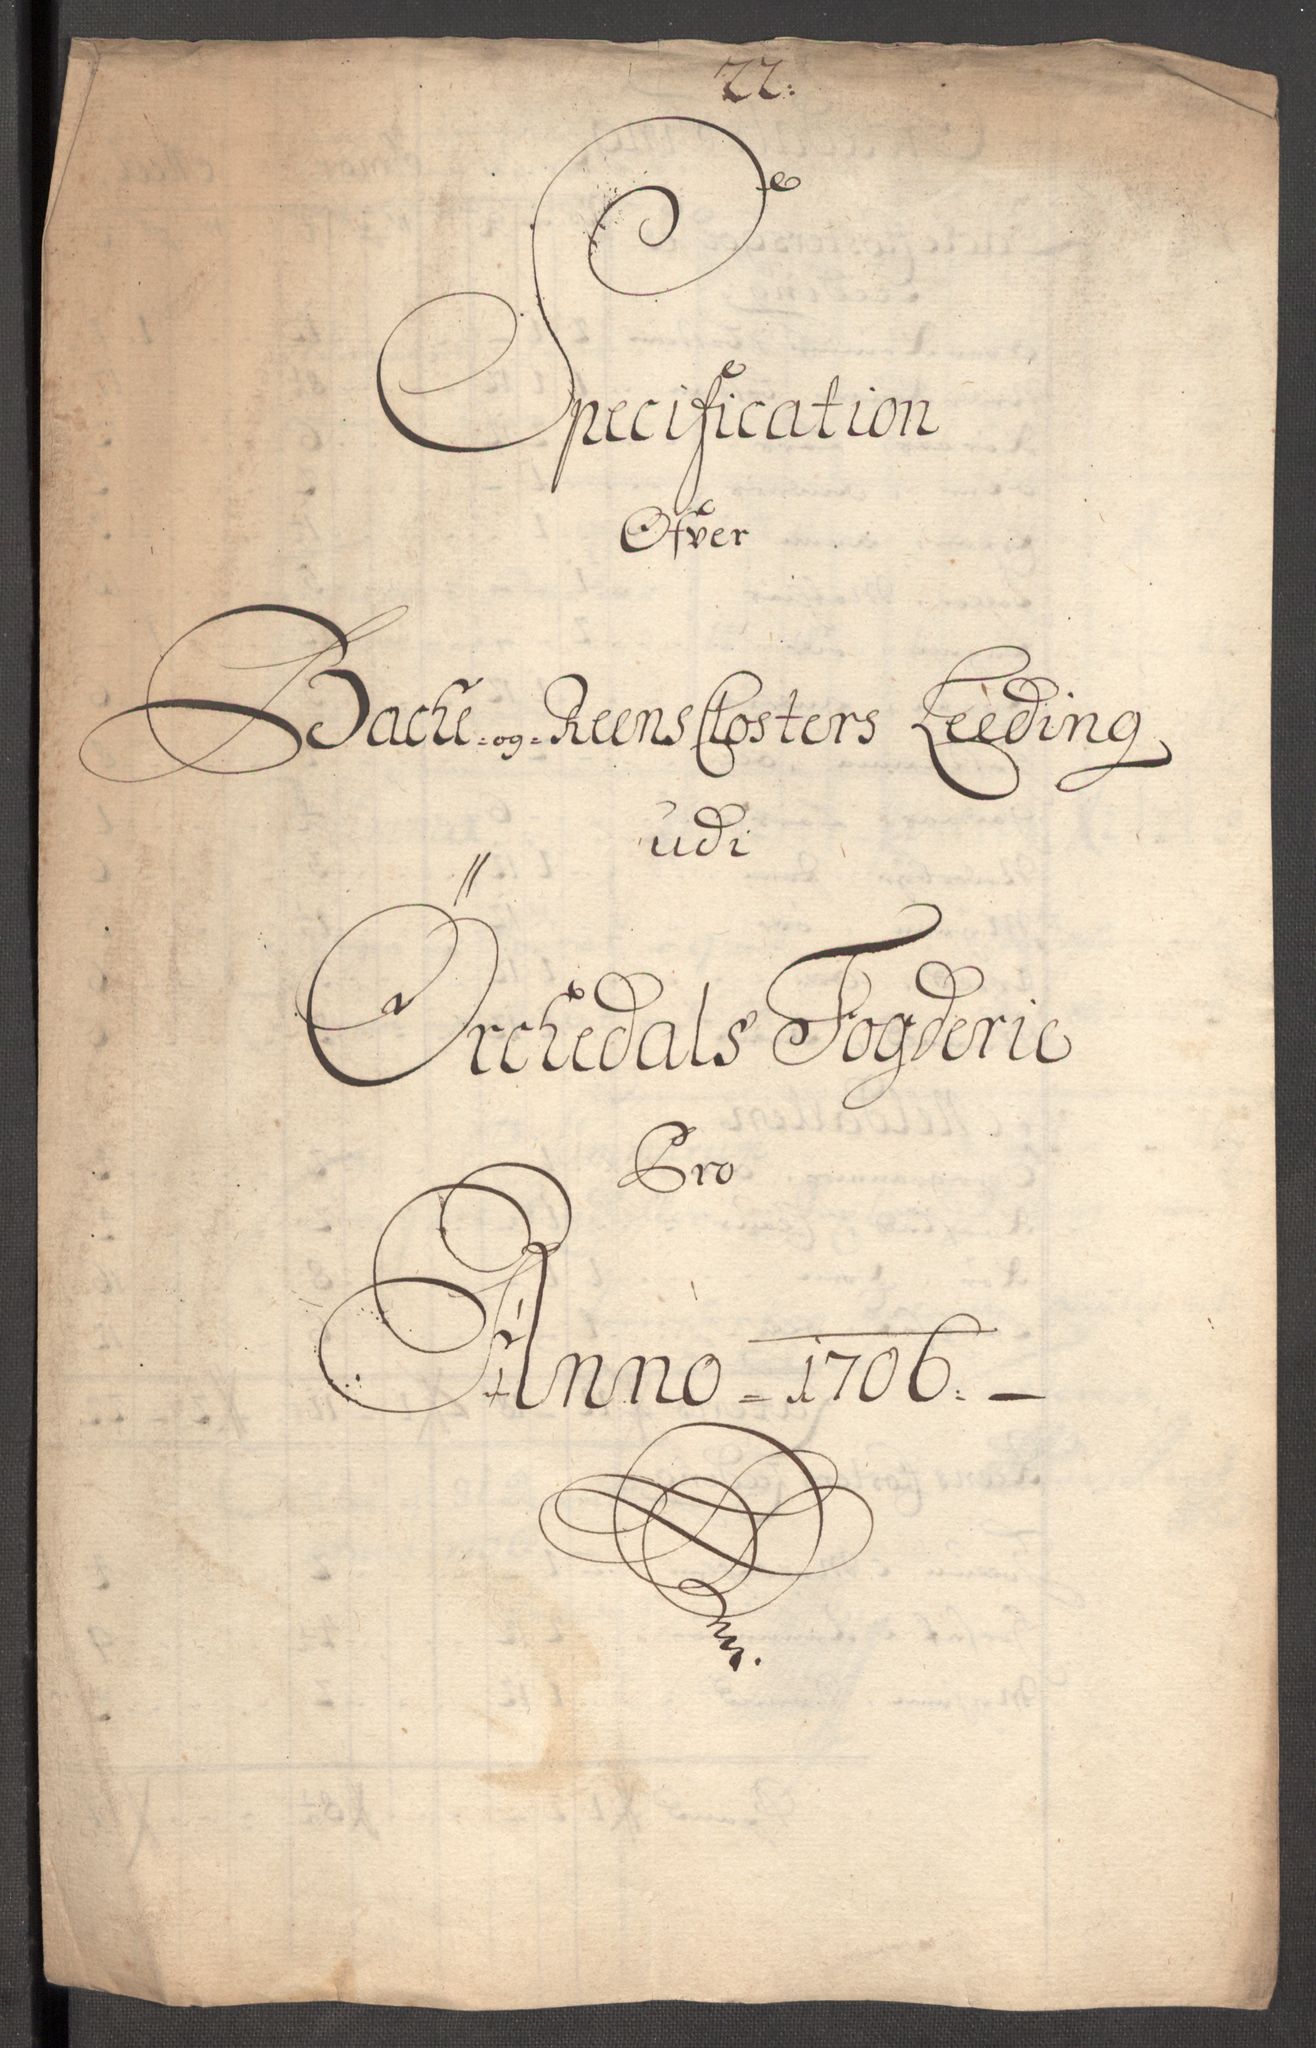 22:
Specification
Ofver
Bache-og-Reens Closters Leeding
udi
Örchedals Fogderie
Pro
Anno = 1706. –